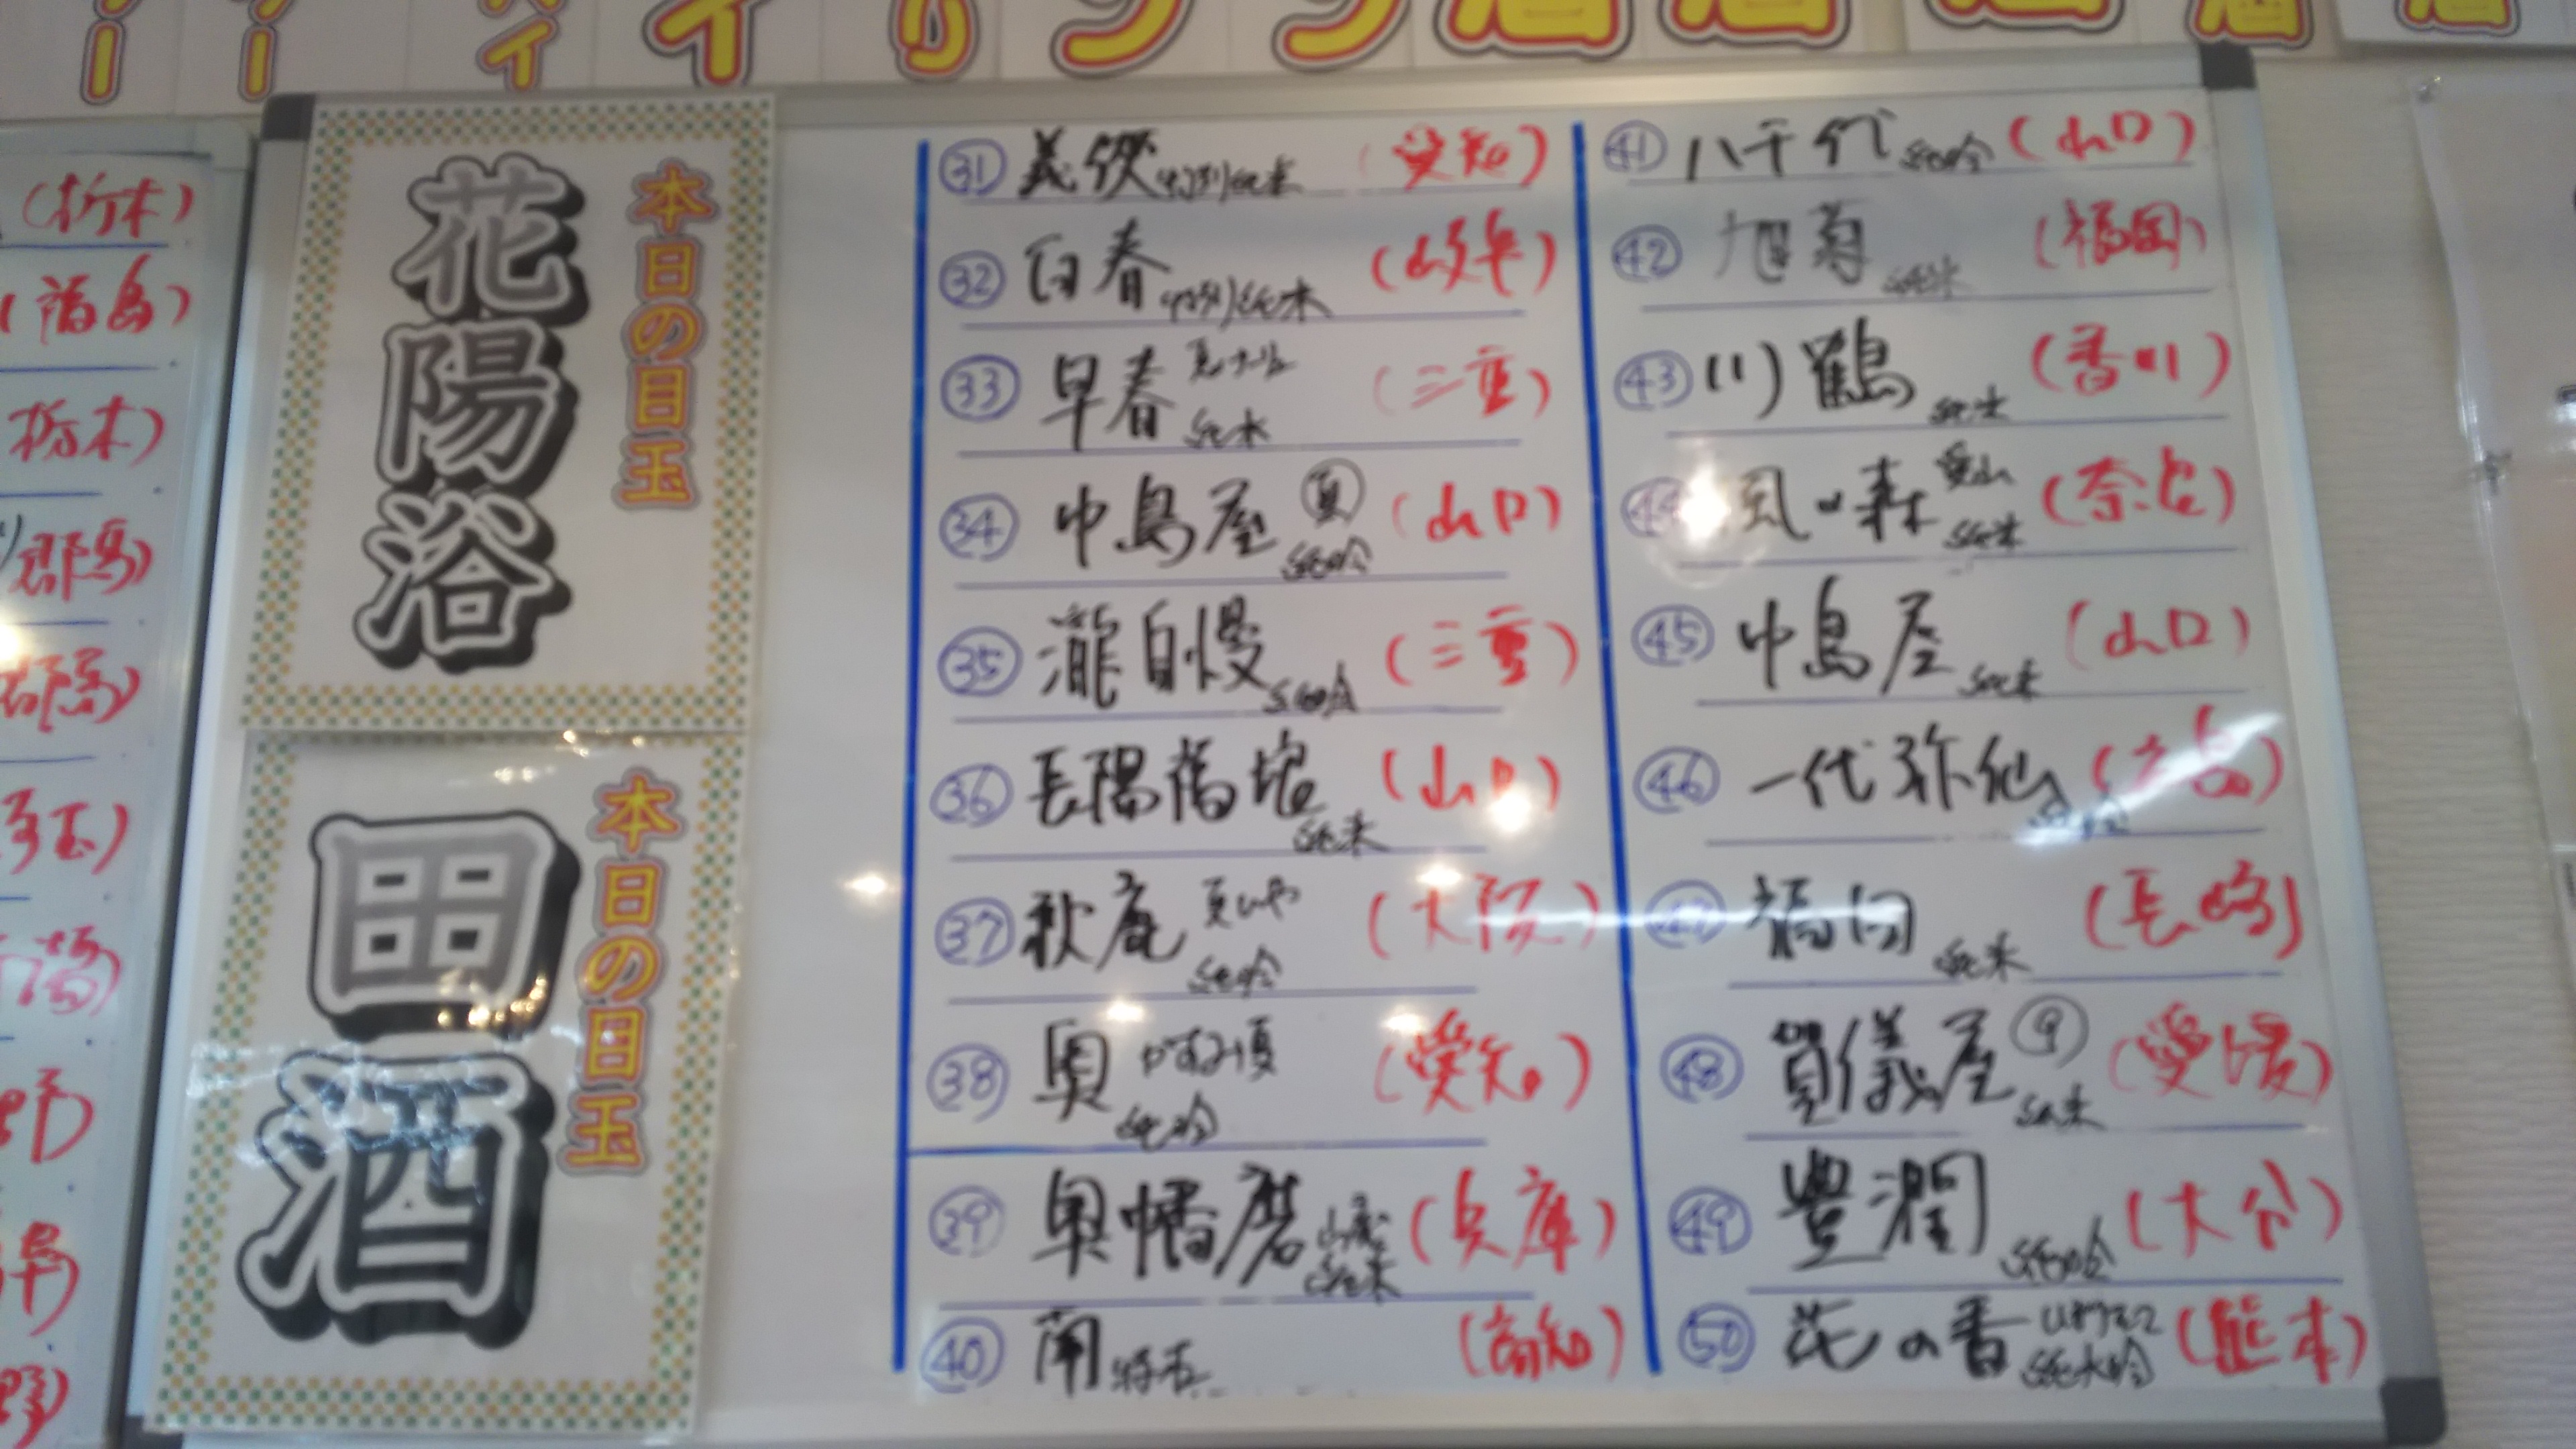 (栃木)
(福島)
栃木)
群馬)
群馬)
埼玉)
本日の目玉
花陽浴
本日の目玉
田酒
㉛ 義侠 特別純米 (愛知)
㉜ 白春 特別純米 (岐阜)
㉝ 早春 純米 (三重)
㉞ 中島屋 夏 純吟 (山口)
㉟ 瀧自慢 純吟 (三重)
㊱ 長陽福娘 純米 (山口)
㊲ 秋鹿 純吟 (大阪)
㊳ 奥 かすみ夏 純吟 (愛知)
㊴ 奥播磨 山廃 純米 (兵庫)
㊵ 南 特本 (高知)
㊶ 八千代 純吟 (山口)
㊷ 旭菊 純米 (福岡)
㊸ 川鶴 純米 (香川)
㊹ 風の森 愛山 純米 (奈良)
㊺ 中島屋 純米 (山口)
㊻ 一代弥山 (広島)
福田 純米 (長崎)
㊽ 賀儀屋 純米 (愛媛)
㊾ 豊潤 純吟 (大分)
㊿ 花の香 純大吟 (熊本)